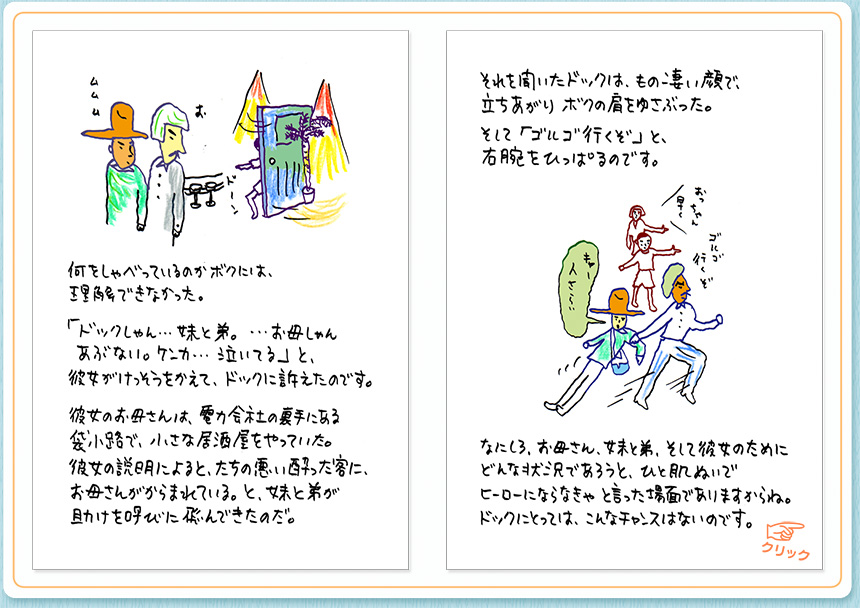 ムムム
む
ドーン
何をしゃべっているのかボクには、
理解できなかった。
「ドックしゃん…妹と弟。…お母しゃん
あぶない。ケンカ…泣いてる」と、
彼女がけっそうをかえて、ドックに訴えたのです。
彼女のお母さんは、電力会社の裏手にある
袋小路で、小さな居酒屋をやっていた。
彼女の説明によると、たちの悪い酔った客に、
お母さんがからまれている。と、妹と弟が
助けを呼びに飛んできたのだ。
それを聞いたドックは、もの凄い顔で、
立ちあがり ボクの肩をゆさぶった。
そして「ゴルゴ行くぞ」と、
右腕をひっぱるのです。
おっちゃん
早く
ゴルゴ
行くぞ
キャー
人さらい
なにしろ、お母さん、妹と弟、そして彼女のために
どんな状況であろうと、ひと肌ぬいで
ヒーローにならなきゃ と言った場面でありますからね。
ドックにとっては、こんなチャンスはないのです。
クリック